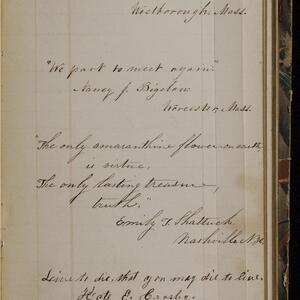 Westborough, Mass.
"We part to meet again."
Nancy J. Bigelow
Worcester, Mass.
"The only amaranthine flower on earth
is virtue,
The only lasting treasure,
truth."
Emily F. Shattuck,
Nashville N.H.
Live to die, that you may die to live.
Kate E. Crosby.